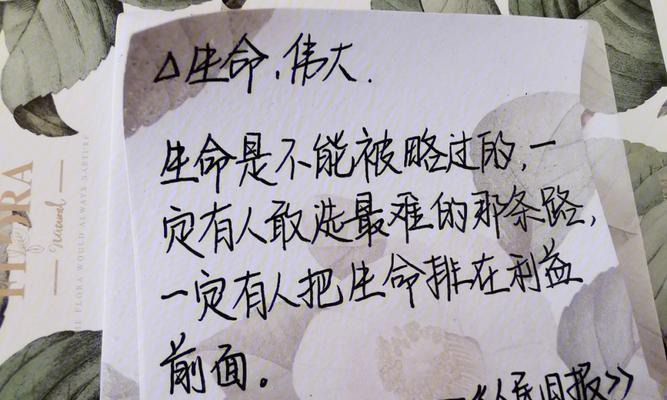 △生命,伟大.
生命是不能被略过的,一
定有人敢选最难的那条路,
一定有人把生命排在利益
前面。
—《人民日报》
FLORA
Natural
THE FLORA WOULD ALWAYS NURTURE